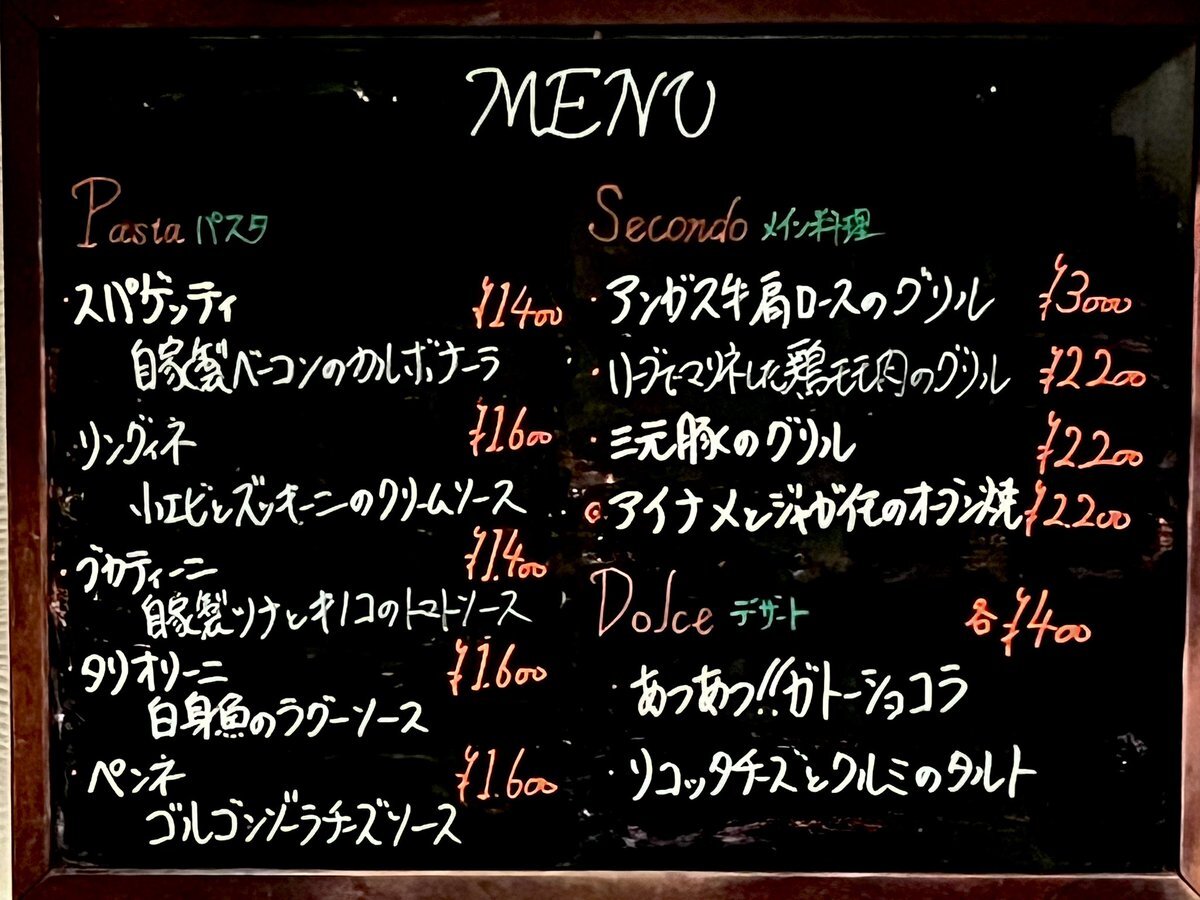 MENU
Pasta パスタ
・スパゲッティ ¥1400
自家製ベーコンのカルボナーラ
リングィネ ¥1.600
小エビとズッキーニのクリームソース
・ブカティーニ ¥1.400
自家製ツナとキノコのトマトソース
タリオリーニ ¥1.600
白身魚のラグーソース
・ペンネ ¥1.600
ゴルゴンゾーラチーズソース
Secondo メイン料理
・アンガス牛肩ロースのグリル ¥3000
・ハーブでマリネした鶏モモ肉のグリル ¥2200
・三元豚のグリル ¥2.200
◎アイナメとジャガイモのオーブン焼 ¥2.200
Dolce デザート 各¥400
・あつあつ!!ガトーショコラ
・リコッタチーズとクルミのタルト